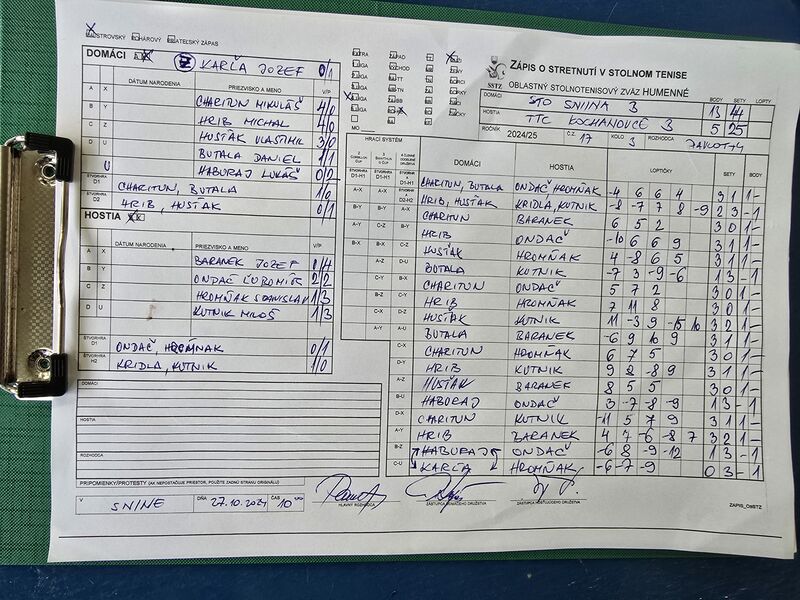 MAJSTROVSKÝ POHÁROVÝ PRIATEĽSKÝ ZÁPAS
DOMÁCI
KARĽA JOZEF 0/1
DÁTUM NARODENIA PRIEZVISKO A MENO V/P
A X CHARITUN MIKULÁŠ 4/0
B Y HRIB MICHAL 4/0
C Z HUSŤAK VLASTIMIL 3/0
D U BUTALA DANIEL 1/1
U HABURAJ LUKÁŠ 0/2
ŠTVORHRA D1 CHARITUN, BUTALA 1/0
D2 HRIB, HUSŤAK 0/1
HOSTIA
DÁTUM NARODENIA PRIEZVISKO A MENO V/P
A X BARANEK JOZEF 0/4
B Y ONDAČ ĽUBOMÍR 2/2
C Z HROMŇAK STANISLAV 1/3
D U KUTNIK MILOŠ 1/3
ŠTVORHRA D1 ONDAČ, HROMŇAK 0/1
ŠTVORHRA H2 KRIDLA, KUTNIK 1/0
DOMÁCI
HOSTIA
ROZHODCA
PRIPOMIENKY/PROTESTY (AK NEPOSTAČUJE PRIESTOR, POUŽITE ZADNÚ STRANU ORIGINÁLU)
V SNINE DŇA 27.10.2024 ČAS 10
HLAVNÝ ROZHODCA
ZÁSTUPCA DOMÁCEHO DRUŽSTVA
ZÁSTUPCA HOSŤUJÚCEHO DRUŽSTVA
ZÁPIS O STRETNUTÍ V STOLNOM TENISE
SSTZ OBLASTNÝ STOLNOTENISOVÝ ZVÄZ HUMENNÉ
DOMÁCI STO SNINA 3 BODY 13 SETY 44 LOPTY
HOSTIA TTC KOCHANOVCE 3 5 25
ROČNÍK 2024/25 Č.Z. 17 KOLO 3 ROZHODCA
HRACÍ SYSTÉM DOMÁCI HOSTIA LOPTIČKY SETY BODY
CHARITUN, BUTALA ONDAČ HROMŇAK -4 6 6 4 3 1 1 -
HRIB, HUSŤAK KRIDLA, KUTNIK -8 -7 7 8 -9 2 3 - 1
CHARITUN BARANEK 6 5 2 3 0 1 -
HRIB ONDAČ -10 6 6 9 3 1 1 -
HUSŤAK HROMŇAK 4 -8 6 5 3 1 1 -
BUTALA KUTNIK -7 3 -9 -6 1 3 - 1
CHARITUN ONDAČ 5 7 2 3 0 1 -
HRIB HROMŇAK 7 11 8 3 0 1 -
HUSŤAK KUTNIK 11 -3 9 -15 10 3 2 1 -
BUTALA BARANEK -6 9 10 9 3 1 1 -
CHARITUN HROMŇAK 6 7 5 3 0 1 -
HRIB KUTNIK 9 2 -8 9 3 1 1 -
HUSŤAK BARANEK 8 5 5 3 0 1 -
HABURAJ ONDAČ 3 -7 -8 -9 1 3 - 1
CHARITUN KUTNIK -11 5 7 9 3 1 1 -
HRIB BARANEK 4 7 -6 -8 7 3 2 1 -
HABURAJ ONDAČ 6 -8 -9 -12 1 3 - 1
KARĽA HROMŇAK -6 -7 -9 0 3 - 1
ZAPIS_ObSTZ